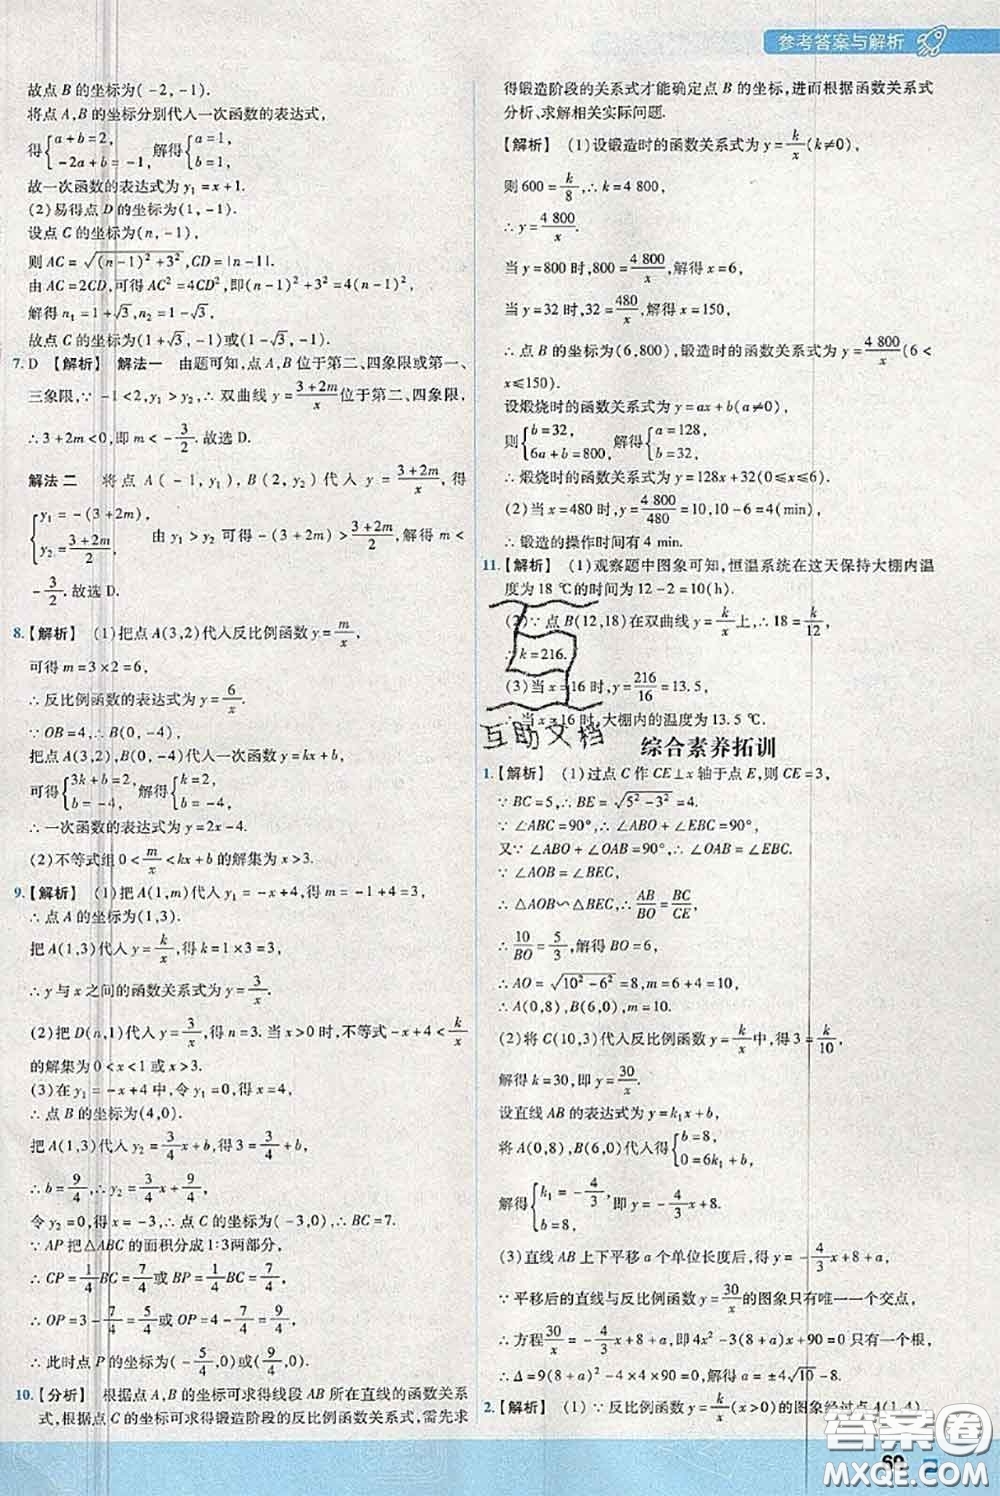 参考答案与解析
故点B的坐标为(-2,-1).
将点A,B的坐标分别代入一次函数的表达式,
得{a+b=2, -2a+b=-1, 解得{a=1, b=1.
故一次函数的表达式为y₁=x+1.
(2)易得点D的坐标为(1,-1).
设点C的坐标为(n,-1),
则AC=√((n-1)²+3²),CD=|n-1|.
由AC=2CD,可得AC²=4CD²,即(n-1)²+3²=4(n-1)²,
解得n₁=1+√3,n₂=1-√3,
故点C的坐标为(1+√3,-1)或(1-√3,-1).
7. D 【解析】 解法一 由题可知,点A,B位于第二、四象限或第一、
三象限,∵-1<2,y₁>y₂,∴双曲线y=(3+2m)/x位于第二、四象限,
∴3+2m<0,即m<-3/2.故选D.
解法二 将点A(-1,y₁),B(2,y₂)代入y=(3+2m)/x,得
{y₁=-(3+2m), y₂=(3+2m)/2, 由y₁>y₂可得-(3+2m)>(3+2m)/2,解得m<
-3/2.故选D.
8.【解析】 (1)把点A(3,2)代入反比例函数y=m/x,
可得m=3×2=6,
∴反比例函数的表达式为y=6/x.
∵OB=4,∴B(0,-4),
把点A(3,2),B(0,-4)代入一次函数y=kx+b,
可得{3k+b=2, b=-4, 解得{k=2, b=-4.
∴一次函数的表达式为y=2x-4.
(2)不等式组0<m/x<kx+b的解集为x>3.
9.【解析】 (1)把A(1,m)代入y₁=-x+4,得m=-1+4=3,
∴点A的坐标为(1,3).
把A(1,3)代入y=k/x,得k=1×3=3,
∴y与x之间的函数关系式为y=3/x.
(2)把D(n,1)代入y=3/x,得n=3.当x>0时,不等式-x+4<k/x
的解集为0<x<1或x>3.
(3)在y₁=-x+4中,令y₁=0,则x=4,
∴点B的坐标为(4,0).
把A(1,3)代入y₂=3/4x+b,得3=3/4+b,
∴b=9/4,∴y₂=3/4x+9/4,
令y₂=0,得x=-3,∴点C的坐标为(-3,0),∴BC=7.
∵AP把△ABC的面积分成1:3两部分,
∴CP=1/4BC=7/4或BP=1/4BC=7/4,
∴OP=3-7/4=5/4或OP=4-7/4=9/4,
∴此时点P的坐标为(-5/4,0)或(9/4,0).
10.【分析】 根据点A,B的坐标可求得线段AB所在直线的函数关系
式,根据点C的坐标可求得锻造阶段的反比例函数关系式,需先求
得锻造阶段的关系式才能确定点B的坐标,进而根据函数关系式
分析、求解相关实际问题.
【解析】 (1)设锻造时的函数关系式为y=k/x(k≠0),
则600=k/8,∴k=4 800,
∴y=4 800/x.
当y=800时,800=4 800/x,解得x=6,
当y=32时,32=480/x,解得x=150,
∴点B的坐标为(6,800),锻造时的函数关系式为y=4 800/x(6<
x≤150).
设煅烧时的函数关系式为y=ax+b(a≠0),
则{b=32, 6a+b=800, 解得{a=128, b=32,
∴煅烧时的函数关系式为y=128x+32(0≤x≤6).
(2)当x=480时,y=4 800/480=10,10-6=4(min),
∴锻造的操作时间有4 min.
11.【解析】 (1)观察题中图象可知,恒温系统在这天保持大棚内温
度为18 ℃的时间为12-2=10(h).
(2)∵点B(12,18)在双曲线y=k/x上,∴18=k/12,
∴k=216.
(3)当x=16时,y=216/16=13.5,
∴当x=16时,大棚内的温度为13.5 ℃.
互助文档
综合素养拓训
1.【解析】 (1)过点C作CE⊥x轴于点E,则CE=3,
∵BC=5,∴BE=√(5²-3²)=4.
∵∠ABC=90°,∴∠ABO+∠EBC=90°.
又∵∠ABO+∠OAB=90°,∴∠OAB=∠EBC.
∵∠AOB=∠BEC,
∴△AOB∽△BEC,∴AB/BO=BC/CE,
∴10/BO=5/3,解得BO=6,
∴AO=√(10²-6²)=8,m=6+4=10,
∴A(0,8),B(6,0),m=10.
(2)将C(10,3)代入反比例函数y=k/x中,得3=k/10,
解得k=30,即y=30/x.
设直线AB的表达式为y=k₁x+b,
将A(0,8),B(6,0)代入得{b=8, 0=6k₁+b,
解得{k₁=-4/3, b=8, 即y=-4/3x+8.
(3)直线AB上下平移a个单位长度后,得y=-4/3x+8+a,
∵平移后的直线与反比例函数y=30/x的图象只有唯一一个交点,
∴方程30/x=-4/3x+8+a,即4x²-3(8+a)x+90=0只有一个根,
∴Δ=9(8+a)²-4×4×90=0,解得a=±4√10-8.
2.【解析】 (1)∵反比例函数y=k/x(x>0)的图象经过点A(1,4),
60
答案圈
MXQE.COM